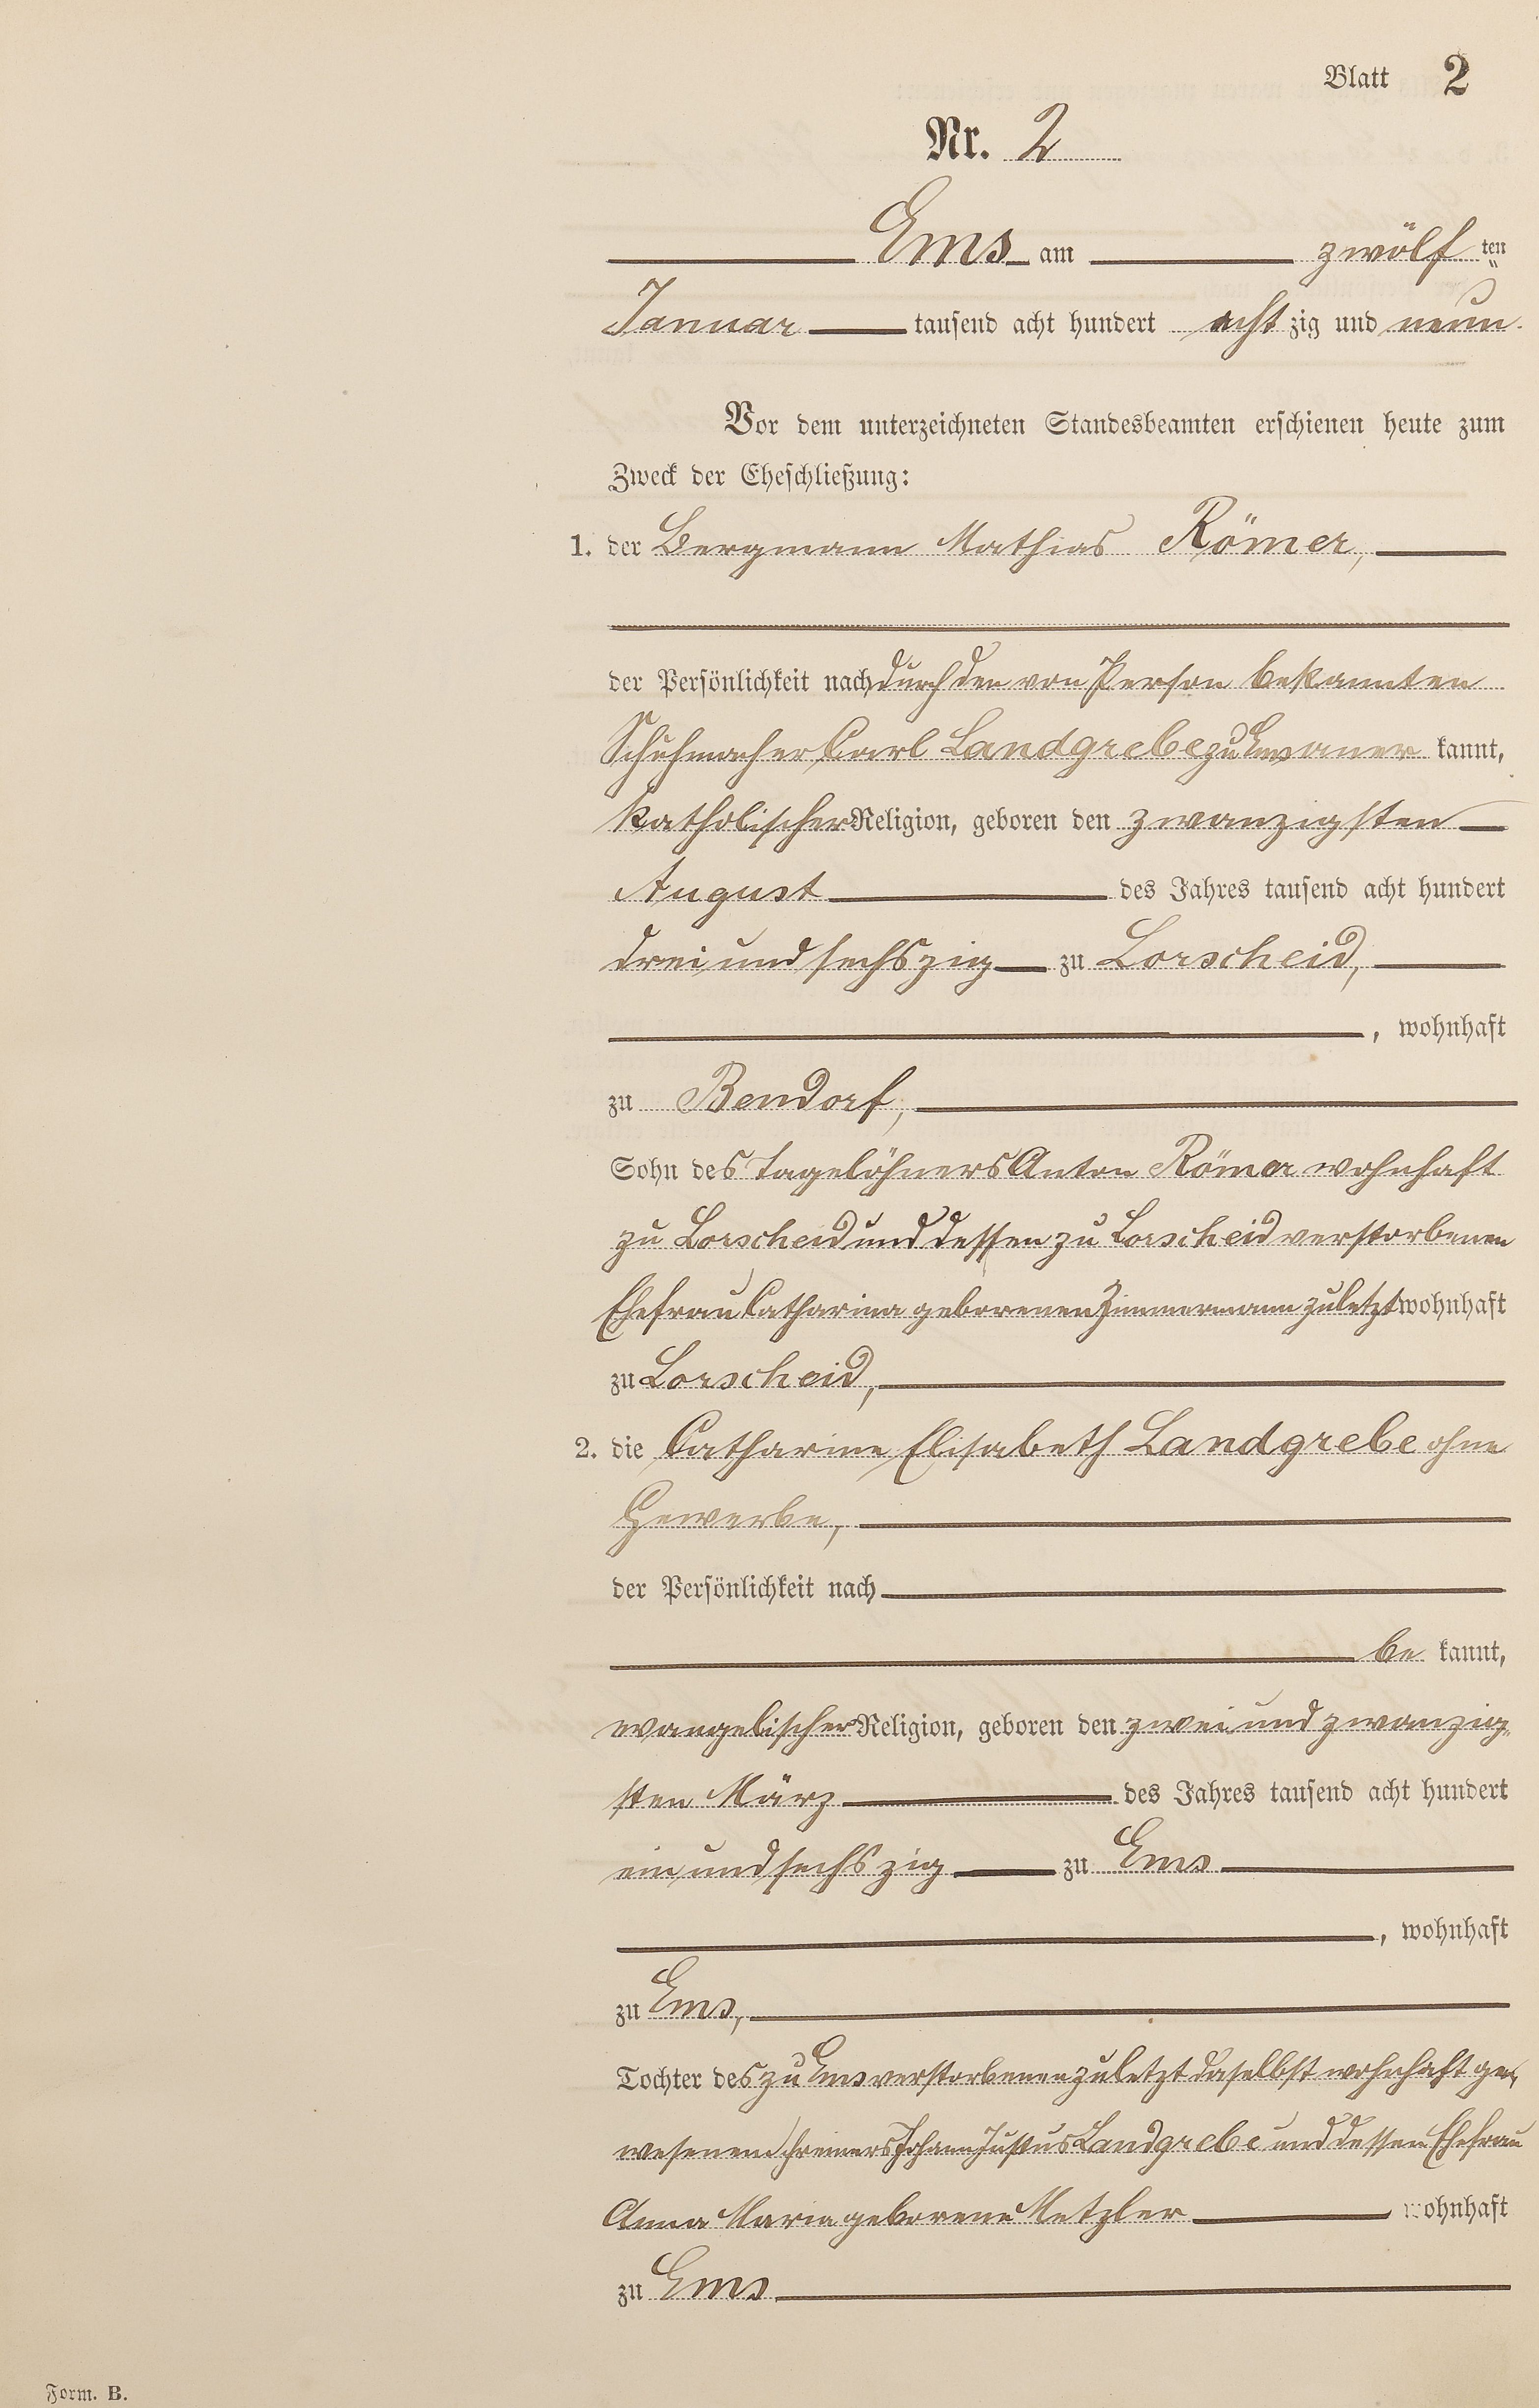 Blatt 2
Nr. 2
Ems am zwölf ten
Januar tausend acht hundert acht zig und neun.
Vor dem unterzeichneten Standesbeamten erschienen heute zum
Zweck der Eheschließung:
1. der Bergmann Mathias Römer,
der Persönlichkeit nach durch den von Person bekannten
Schuhmacher Carl Landgrebe zu Ems aner kannt,
katholischer Religion, geboren den zwanzigsten
August des Jahres tausend acht hundert
drei und sechszig zu Lorscheid,
, wohnhaft
zu Bendorf,
Sohn des Tagelöhners Anton Römer wohnhaft
zu Lorscheid und dessen zu Lorscheid verstorbenen
Ehefrau Catharina geborenen Zimmermann zuletzt wohnhaft
zu Lorscheid,
2. die Catharine Elisabeth Landgrebe ohne
Gewerbe,
der Persönlichkeit nach
be kannt,
evangelischer Religion, geboren den zwei und zwanzig-
sten März des Jahres tausend acht hundert
ein und sechszig zu Ems
, wohnhaft
zu Ems,
Tochter des zu Ems verstorbenen zuletzt daselbst wohnhaft ge-
wesenen Schreiners Johann Justus Landgrebe und dessen Ehefrau
Anna Maria geborene Metzler wohnhaft
zu Ems
Form. B.